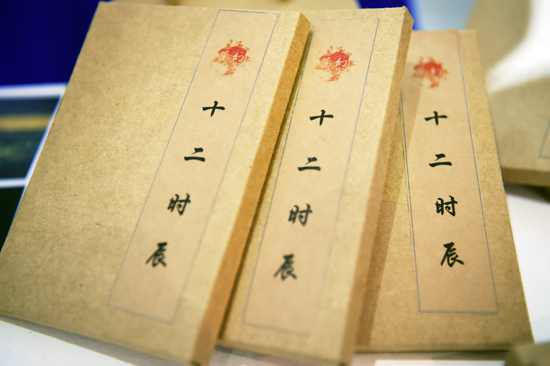 十二时辰
十二时辰
十二时辰